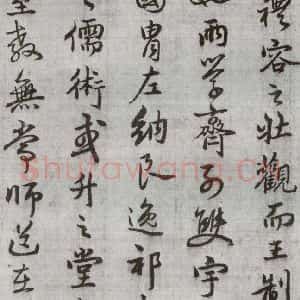 禮容之壯觀而王制
兩學齊列雙宇
國胄左納良逸祁
儒術或升之堂
教無常師道在
Shufawang.Cn